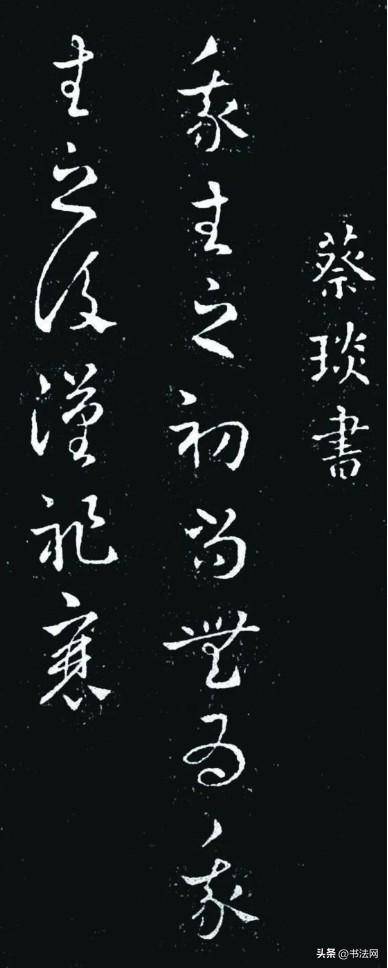 蔡琰書
我生之初尚無為我
生之後漢祚衰
头条 @书法网